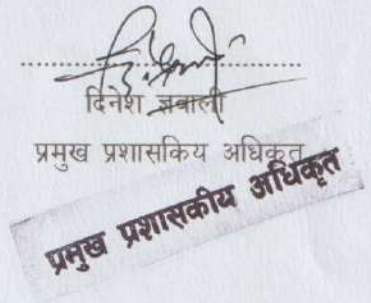 दिनेश ज्ञवाली
प्रमुख प्रशासकिय अधिकृत
प्रमुख प्रशासकीय अधिकृत